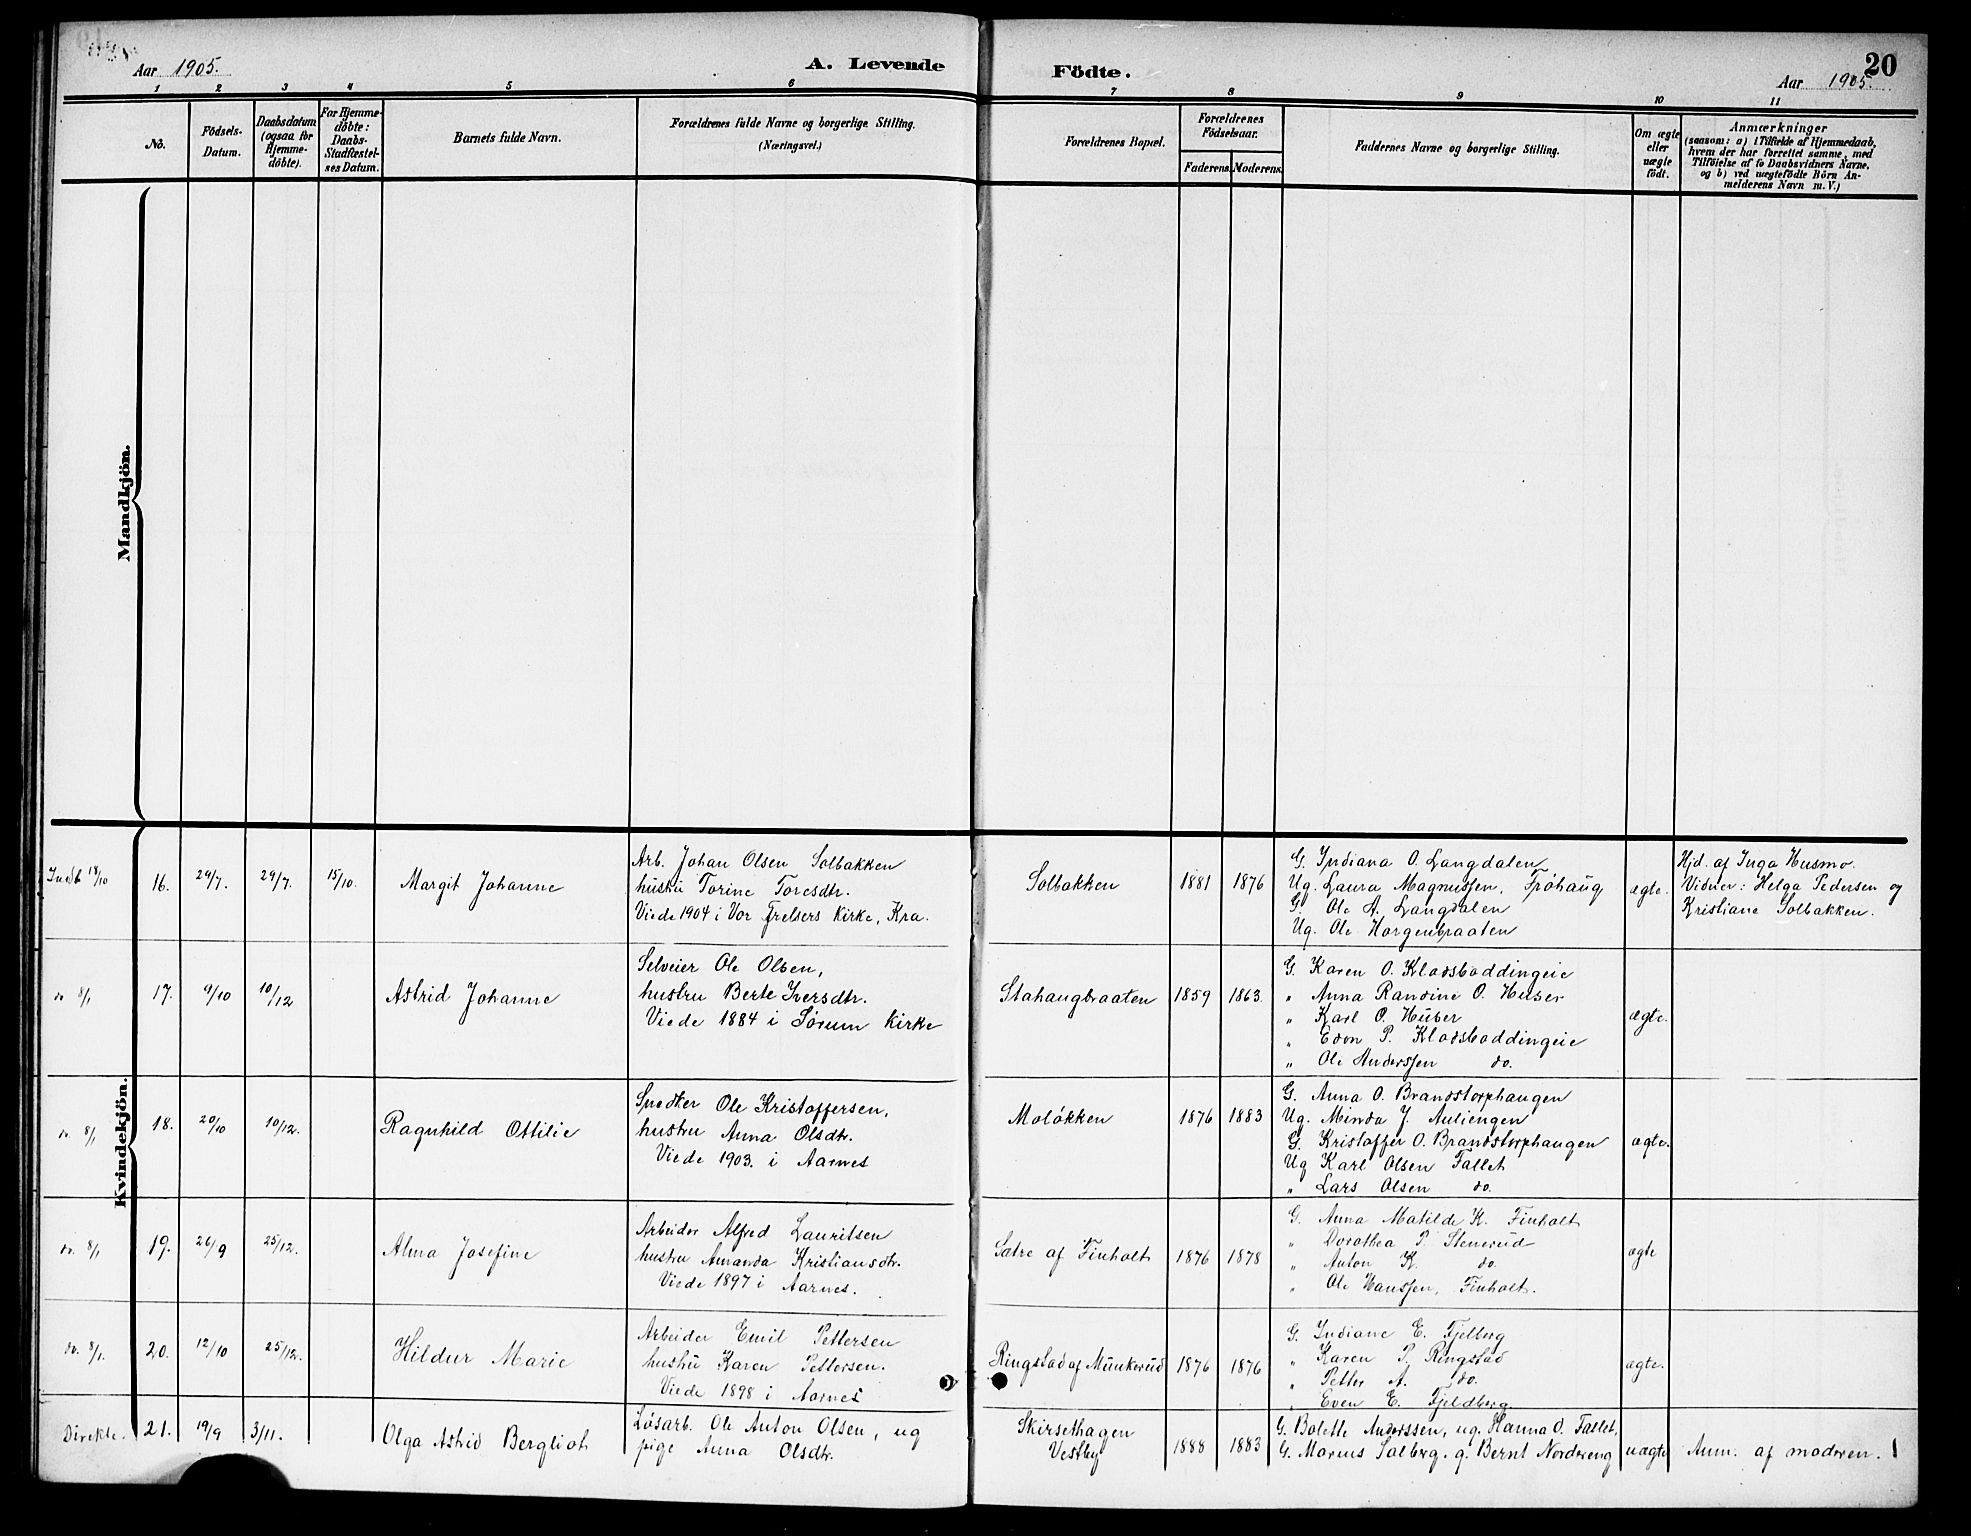 Aar 1905.
A. Levende
Födte.
20
Aar 1905.
1 2 3 4 5 6 7 8 9 10 11
No.
Födsels-
Datum.
Daabsdatum
(ogsaa for
Hjemme-
döbte).
For Hjemme-
döbte:
Daabs-
Stadfæstel-
ses Datum.
Barnets fulde Navn.
Forældrenes fulde Navne og borgerlige Stilling.
(Næringsvei.)
Forældrenes Bopæl.
Forældrenes
Födselsaar.
Faderens. Moderens.
Faddernes Navne og borgerlige Stilling.
Om ægte
eller
uægte
födt.
Anmærkninger
(saasom: a) i Tilfælde af Hjemmedaab,
hvem der har forrettet samme, med
Tilföielse af to Daabsvidners Navne,
og b) ved uægtefödte Börn An-
melderens Navn m. V.)
Mandkjön.
Kvindekjön.
Indb 18/10
16.
29/7.
29/7.
15/10.
Margit Johanne
Arb. Johan Olsen Solbakken
hustru Torine Toresdtr.
Viede 1904 i Vor Frelsers Kirke, Kra.
Solbakken
1881
1876
G. Indiana O. Langdalen
Ug. Laura Magnussen, Frøhaug
G. Ole A. Langdalen
Ug. Ole Horgenbraaten
ægte.
Hjd. af Inga Husmo.
Vidner: Helga Pedersen og
Kristiane Solbakken.
do 8/1
17.
9/10
10/12
Astrid Johanne
Selveier Ole Olsen,
hustru Berte Iversdtr.
Viede 1884 i Sørum Kirke
Stahaugbraaten
1859
1863.
G. Karen O. Klodsboddingeie
" Anna Randine O. Huser
" Karl O. Huser
" Edvn P. Klodsboddingeie
" Ole Anderssen do.
ægte.
do. 8/1
18.
20/10
10/12.
Ragnhild Ottilie
Snedker Ole Kristoffersen,
hustru Anna Olsdtr.
Viede 1903. i Aarnes
Moløkken
1876
1883
G. Anna O. Brandstorphaugen
Ug. Minda J. Auliengen
G. Kristoffer O. Brandstorphaugen
Ug Karl Olsen Fallet
" Lars Olsen do.
ægte.
do. 8/1
19.
26/9
25/12.
Alma Josefine
Arbeider Alfred Lauritsen
hustru Amanda Kristiansdtr.
Viede 1897 i Aarnes.
Sætre af Finholt
1876
1878
G. Anna Matilde K. Finholt
" Dorothea P. Stenerud
" Anton K. do.
" Ole Hanssen, Finholt.
ægte
do. 8/1.
20.
12/10
25/12.
Hildur Marie
Arbeider Emil Pettersen
hustru Karen Pettersen.
Viede 1898 i Aarnes
Ringstad af Munkerud
1876
1876
G. Indiane E. Fjelberg
" Karen P. Ringstad
" Petter A. do.
" Even E. Fjeldberg
ægte.
Direkte.
21.
19/9
3/11.
Olga Astrid Bergliot
Løsarb. Ole Anton Olsen, ug
pige Anna Olsdtr.
Skirsethagen
Vestby
1888
1883
G. Bolette Anderssen, ug. Hanna O. Fallet,
G. Marius Solberg. g. Bernt Nordereng
uægte
Anm. af moderen.